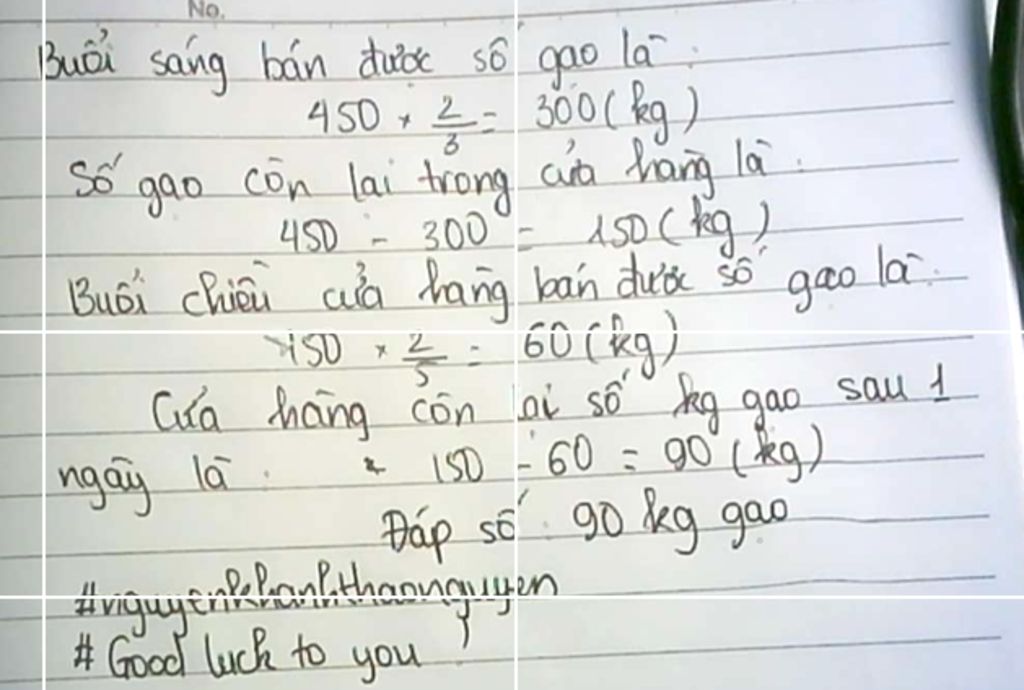 No.
Buổi sáng bán được số gạo là:
450 × 2/3 = 300 (kg)
Số gạo còn lại trong cửa hàng là:
450 - 300 = 150 (kg)
Buổi chiều cửa hàng bán được số gạo là:
150 × 2/5 = 60 (kg)
Cửa hàng còn lại số kg gạo sau 1
ngày là: 150 - 60 = 90 (kg)
Đáp số: 90 kg gạo
#nguyenkhanhthaonguyen
# Good luck to you